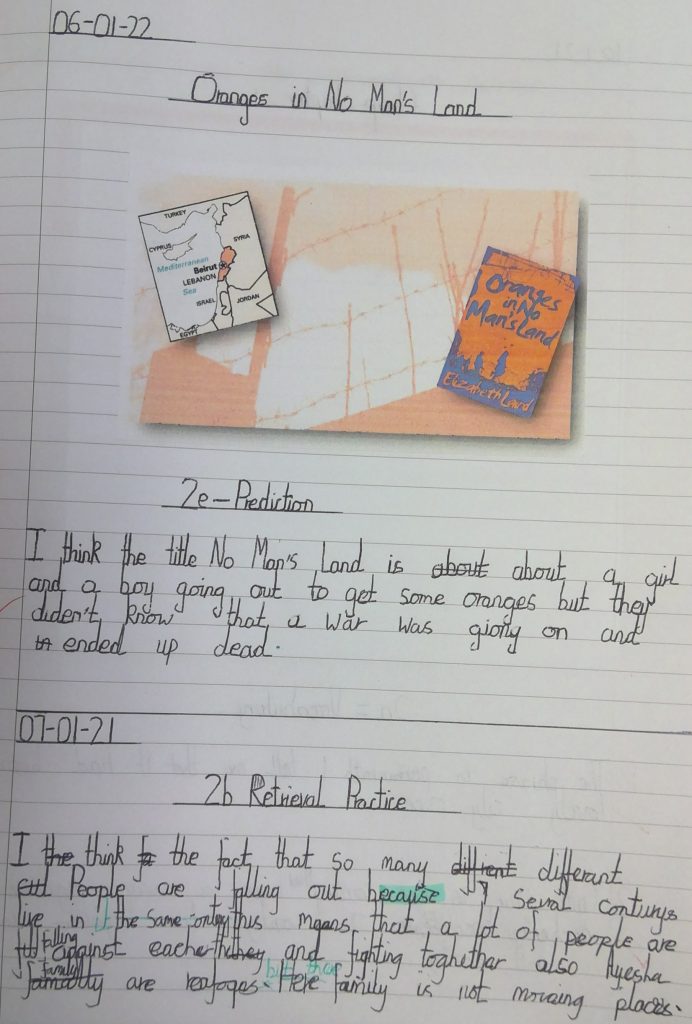 06-01-22
Oranges in No Man's Land
TURKEY
CYPRUS
SYRIA
Mediterranean
Sea
Beirut
LEBANON
ISRAEL
JORDAN
EGYPT
Oranges
in No
Man's Land
Elizabeth Laird
2e - Prediction
I think the title No Man's Land is about about a girl
and a boy going out to get some oranges but they
diden't know that a war was giong on and
ended up dead.
07-01-21
2b Retrieval Practice
I the think the fact that so many diffrent different
People are falling out because Seval conturys
live in it the same this means that a lot of people are
falling against and fighting toghether also Ayesha
family are Here family is not moving places.